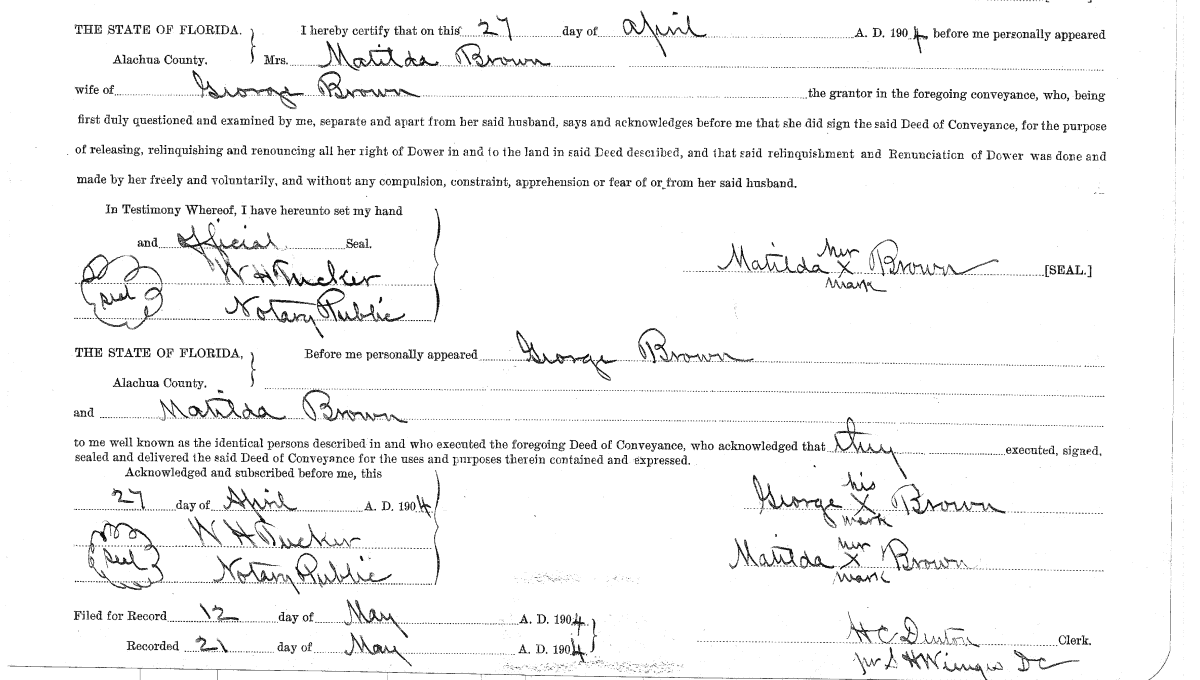 THE STATE OF FLORIDA. } I hereby certify that on this 27 day of April A. D. 1904 before me personally appeared
Alachua County. Mrs. Matilda Brown
wife of George Brown the grantor in the foregoing conveyance, who, being
first duly questioned and examined by me, separate and apart from her said husband, says and acknowledges before me that she did sign the said Deed of Conveyance, for the purpose
of releasing, relinquishing and renouncing all her right of Dower in and to the land in said Deed described, and that said relinquishment and Renunciation of Dower was done and
made by her freely and voluntarily, and without any compulsion, constraint, apprehension or fear of or from her said husband.
In Testimony Whereof, I have hereunto set my hand
and official Seal.
her
Matilda X Brown [SEAL.]
mark
Seal W H Tucker
Notary Public
THE STATE OF FLORIDA, } Before me personally appeared George Brown
Alachua County.
and Matilda Brown
to me well known as the identical persons described in and who executed the foregoing Deed of Conveyance, who acknowledged that they executed, signed,
sealed and delivered the said Deed of Conveyance for the uses and purposes therein contained and expressed.
Acknowledged and subscribed before me, this
27 day of April A. D. 1904
his
George X Brown
mark
Seal W H Tucker
Notary Public
her
Matilda X Brown
mark
Filed for Record 12 day of May A. D. 1904
Recorded 21 day of May A. D. 1904
H C Denton Clerk.
pr S H Wienges DC